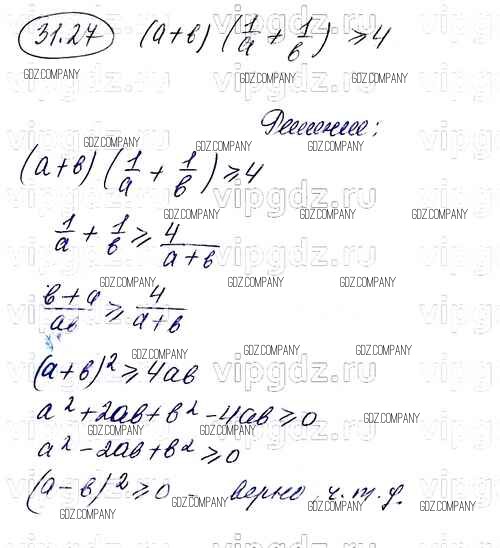 31.27 (a+b) (1/a + 1/b) ≥ 4
Решение:
(a+b) (1/a + 1/b) ≥ 4
1/a + 1/b ≥ 4/(a+b)
(b+a)/(ab) ≥ 4/(a+b)
(a+b)² ≥ 4ab
a² + 2ab + b² - 4ab ≥ 0
a² - 2ab + b² ≥ 0
(a-b)² ≥ 0 - верно, ч.т.д.
vipgdz.ru
GDZ.COMPANY